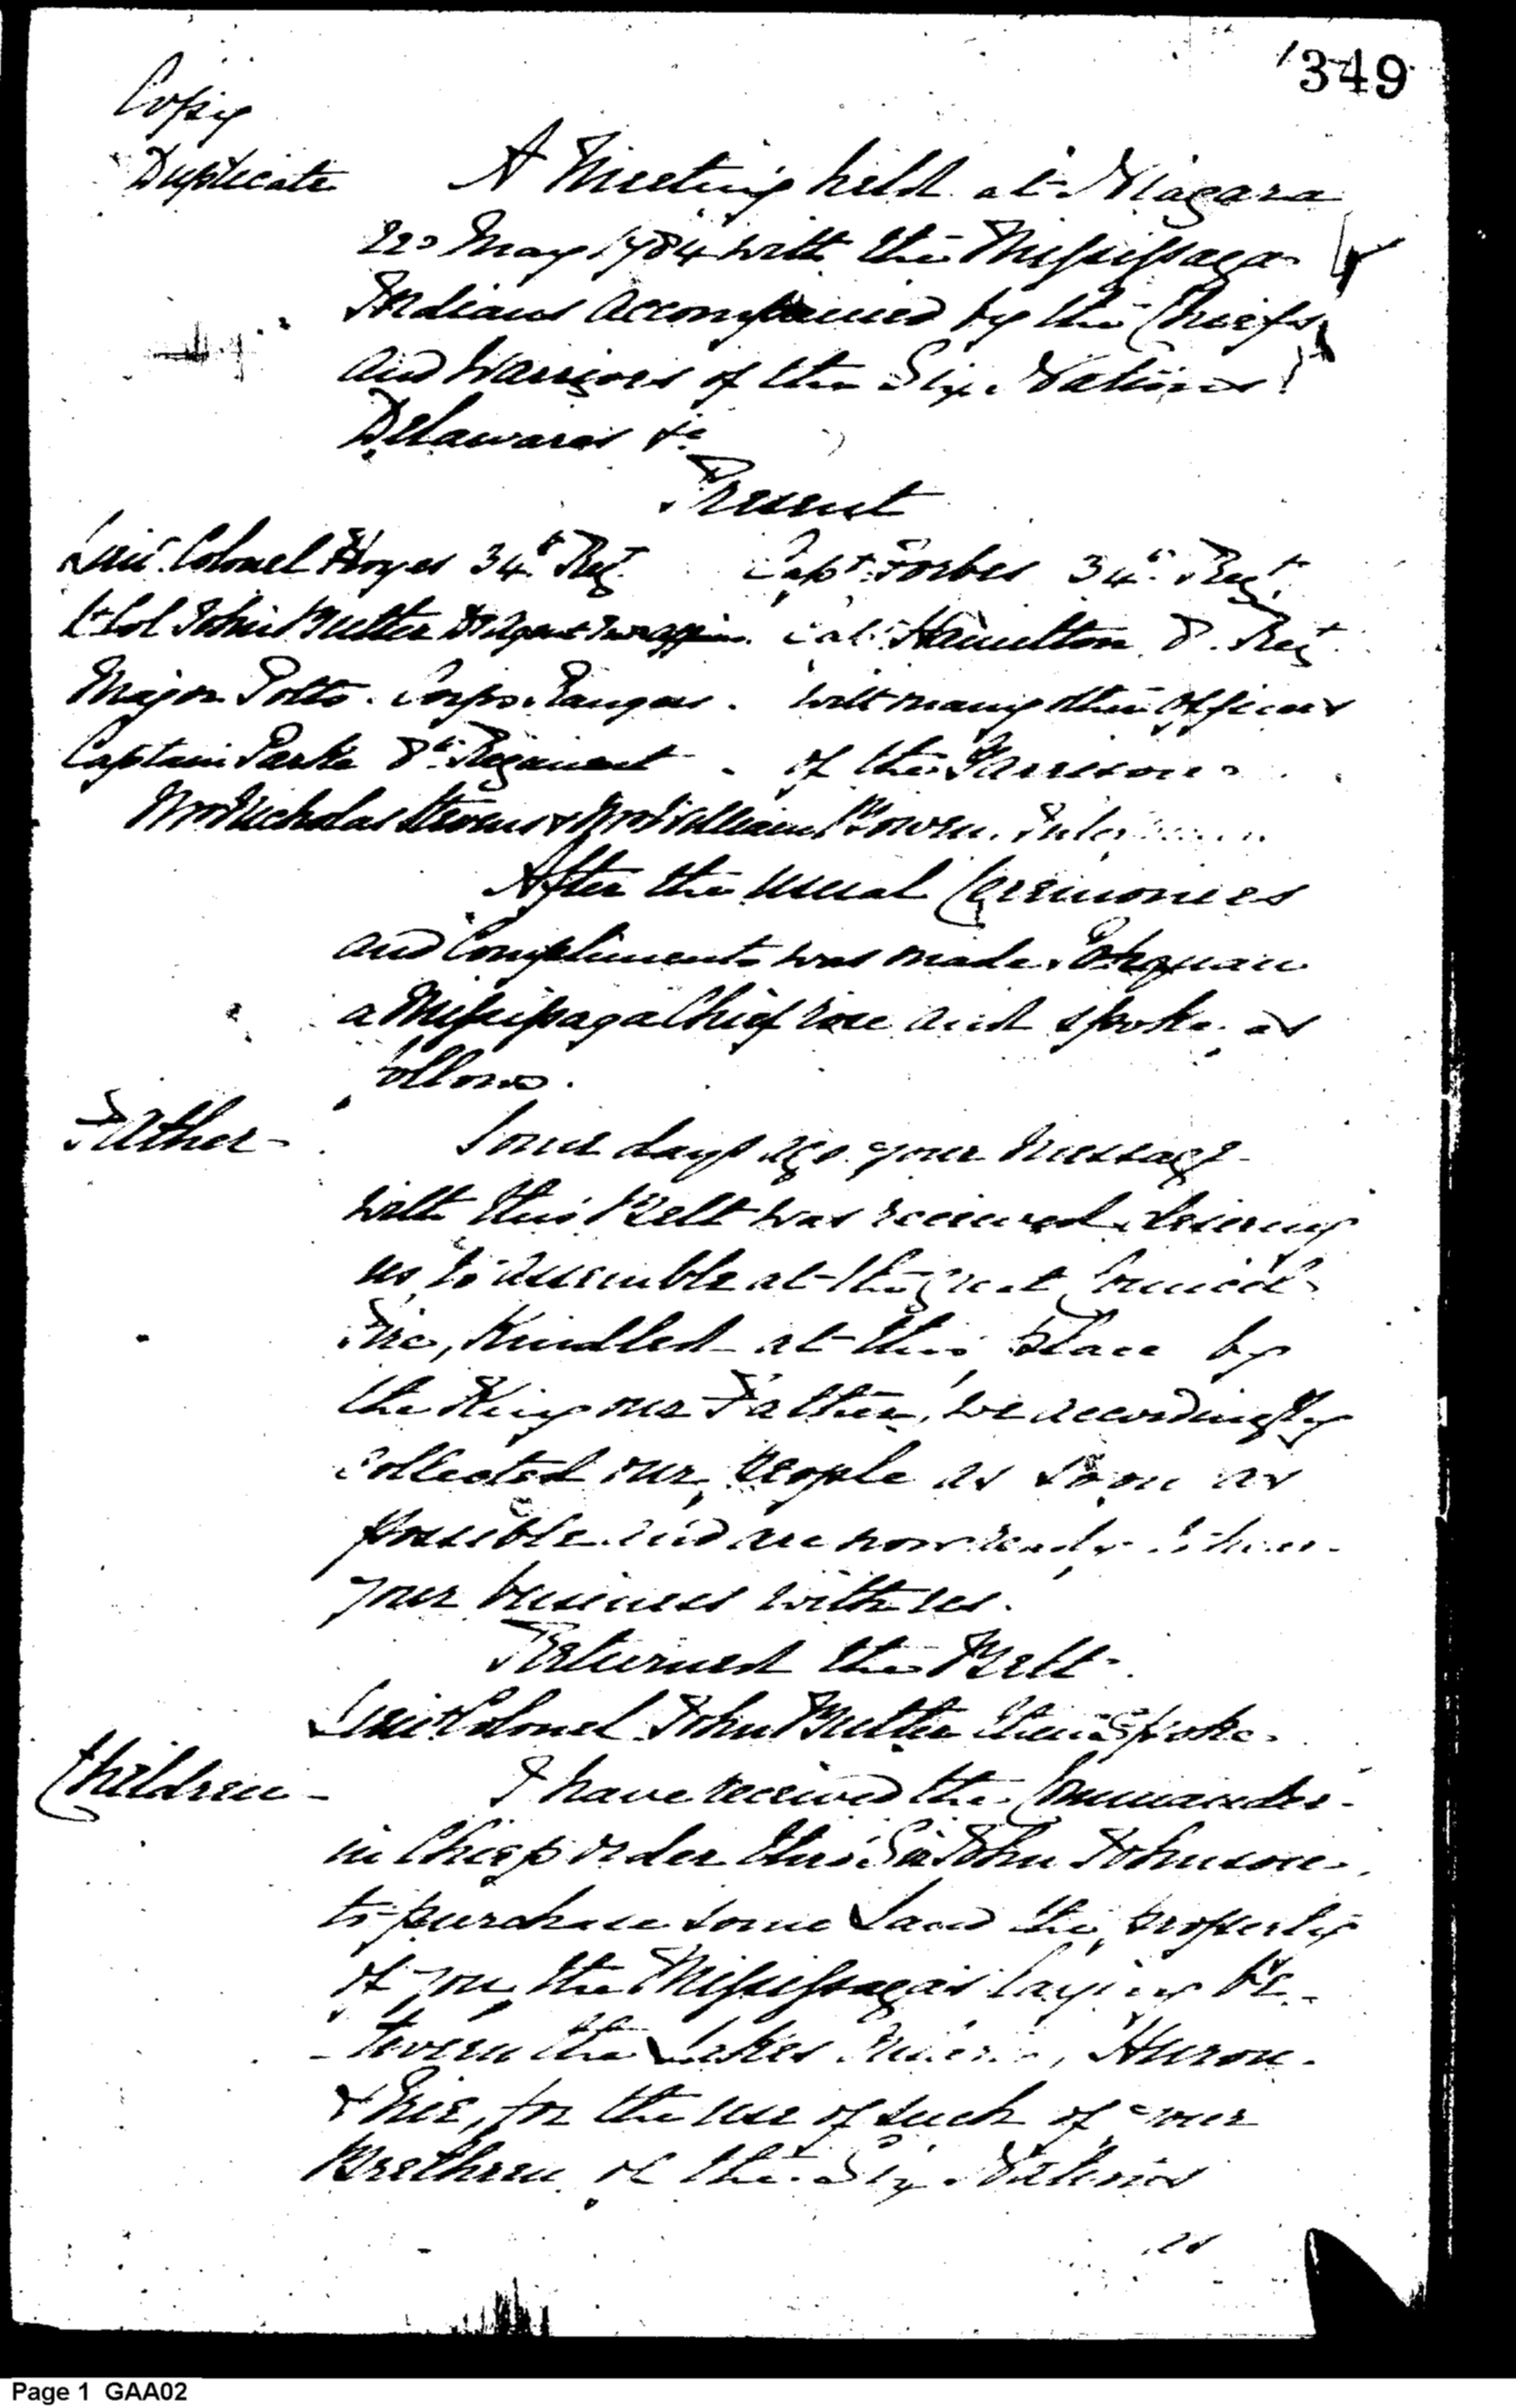 349
Copy
Duplicate A Meeting held at Niagara
22d May 1784 with the Mississaga
Indians accompanied by the Chiefs
and Warriors of the Six Nations
Delawares &c
Present
Lieut. Colonel Hoyes 34th Regt. Capt. Forbes 34th Regt.
Lt Col John Butler Capt. Hamilton 8 Regt
Major Potts Corps Rangers. with many other Officers
Captain Parke 8th Regiment of the Garrison
Mr Nicholas Stevens & Mr William Bowen
After the usual Ceremonies
and Compliments was made Pokquan
a Missisaga Chief rose and spoke as
follows.
Father - Some days ago your Message
with this Belt was received desiring
us to assemble at the great Council
Fire, Kindled at this place by
the King our Father, we accordingly
collected our people as soon as
possible and are now ready to hear
your business with us.
Returned the Belt.
Lieut Colonel John Butler then Spoke.
Children - I have received the Commander
in Chief's order thro' Sir John Johnson
to purchase some Land the property
of you the Missisagas laying be
-tween the Lakes Ontario, Huron
& Erie, for the use of such of your
Brethren of the Six Nations
as
Page 1 GAA02